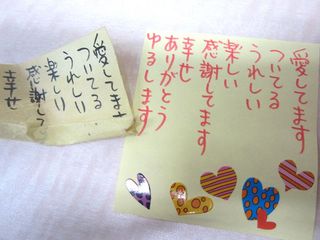 愛してます
ついてる
うれしい
楽しい
感謝して
幸せ
愛してます
ついてる
うれしい
楽しい
感謝してます
幸せ
ありがとう
ゆるします